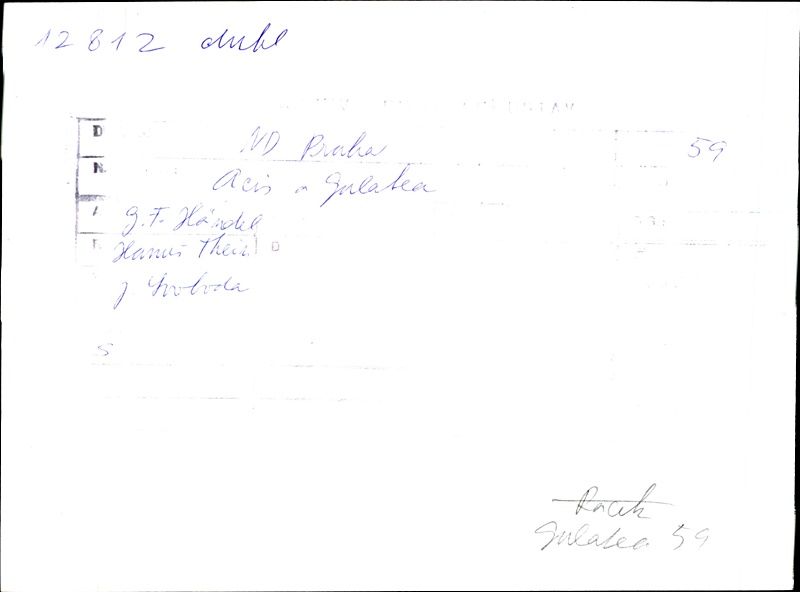 12812 dukl
D ND Praha 59
N Acis a Galatea
A G. F. Händel
Hanuš Thein D
J. Svoboda
S
Racek
Galatea 59